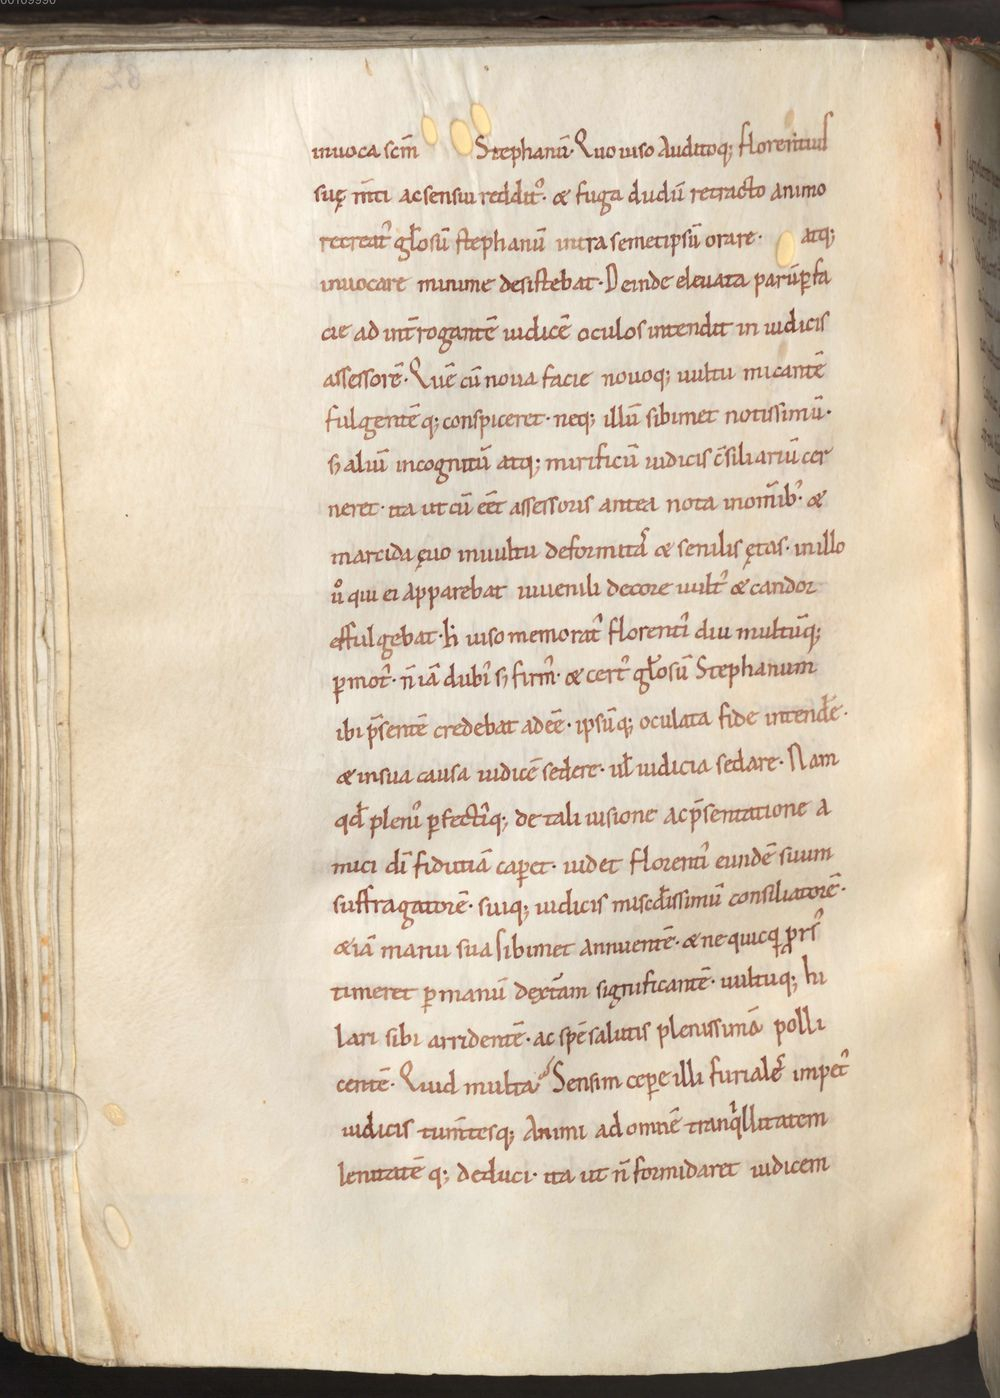 inuoca scm̄ Stephanū. Quo uiso Auditoq; florentius
suę m̄ti ac sensui reddit᾿. & fuga dudū retracto animo
recreat᾿ gl̄osū stephanū intra semetipsū orare. atq;
inuocare minime desistebat. Deinde eleuata parūp̄ fa
cie ad int̄rogantē iudicē oculos intendit in iudicis
assessorē. Quē cū noua facie nouoq; uultu micantē
fulgentēq; conspiceret. neq; illū sibimet notissimū.
s; aliū incognitū atq; mirificū iudicis c̄siliariū cer
neret. ita ut cū eēt assessoris antea nota in om̄ib᾿. &
marcida ęuo in uultu deformitas & senilis ętas. in illo
u͛o qui ei apparebat iuuenili decore uult᾿ & candor
effulgebat. h̄ uiso memorat᾿ florenti᾿ diu multūq;
p̄mot᾿. n̄ iā dubi᾿ s; firm᾿. & cert᾿ gl̄osū Stephanum
ibi p̄sentē credebat adeē. ipsūq; oculata fide intende͛.
& in sua causa iudicē sedere. ul̄ iudicia sedare. Nam
qd̄ pleni᾿ p̄fecti᾿q; de tali uisione ac p̄sentatione a
mici dī fidutiā cap̄et. uidet florenti᾿ eundē suum
suffragatorē. suiq; iudicis miscd̄issimū consiliatorē.
& iā manu sua sibimet annuentē. & ne quicq p̄rs᾿
timeret p̄ manū dext̄am significantē. uultuq; hi
lari sibi arridentē. ac spē salutis plenissimā polli
centē. Quid multa? Sensim cep̄e illi furiales impet᾿
iudicis tum̄tesq; Animi ad omnē tranq̍llitatem
lenitatēq; deduci. ita ut n̄ formidaret iudicem